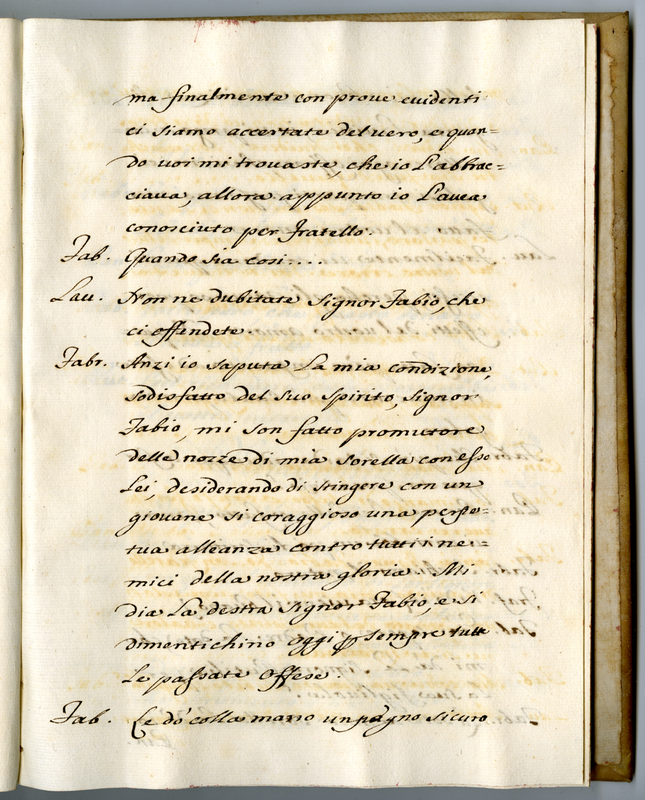 ma finalmente con prove evidenti
ci siamo accertate del vero, e quan=
do voi mi trovaste, che io l'abbrac=
ciava, allora appunto io l'avea
conosciuto per fratello.
Fab. Quando sia così....
Lau. Non ne dubitate Signor Fabio, che
ci offendete.
Fabr. Anzi io saputa la mia condizione,
sodisfatto del suo spirito, Signor
Fabio, mi son fatto promutore
delle nozze di mia sorella con esso
Lei, desiderando di stingere con un
giovane sì coraggioso una perpe=
tua alleanza contro tutti i ne=
mici della nostra gloria. Mi
dia la destra Signor Fabio, e si
dimentichino oggi p sempre tutte
le passate offese.
Fab. Le dò colla mano un pegno sicuro